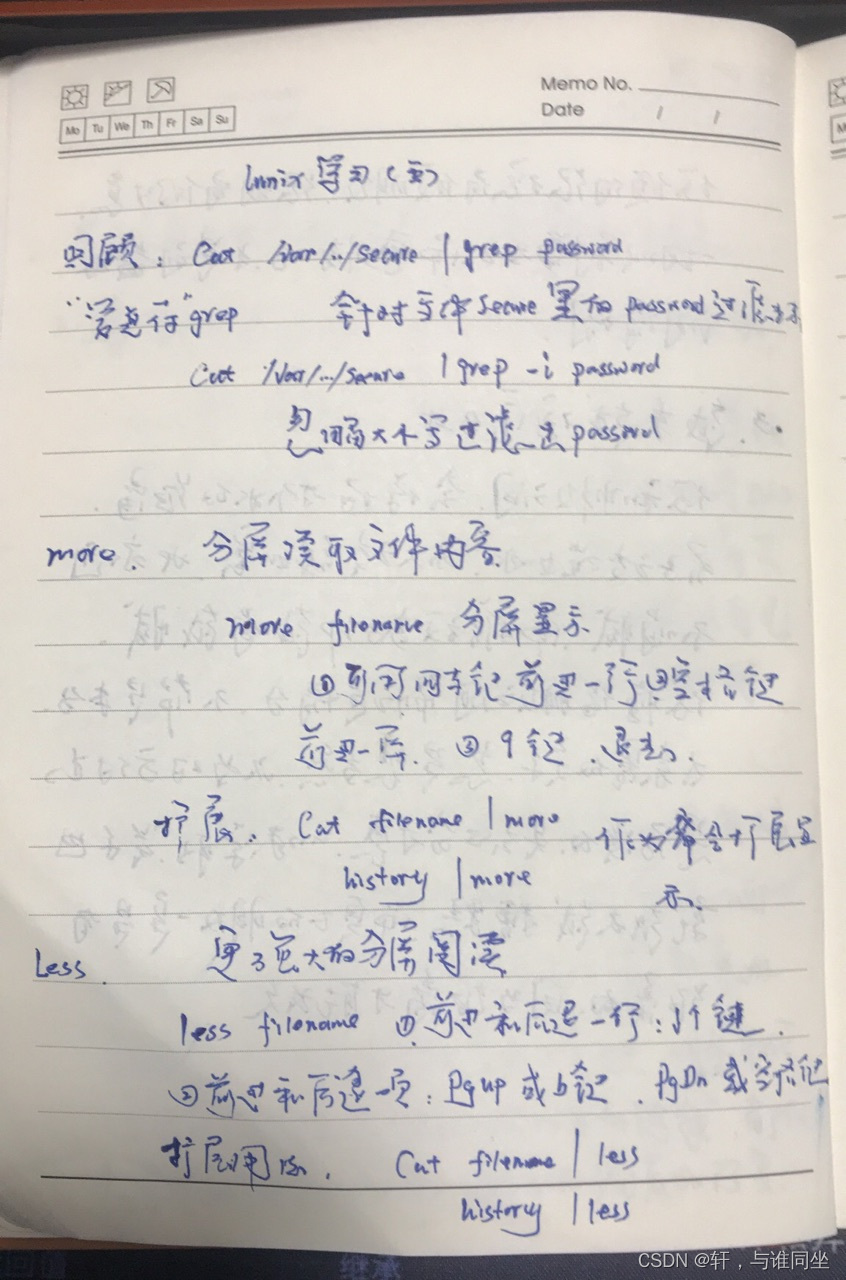 Memo No.
Mo Tu We Th Fr Sa Su
Date / /
Linnix 学习(五)
回顾: Cat /Var/../Secure | grep password
"管道符" grep 针对文件Secure里的password过滤出来
Cat /Var/../Secure | grep -i password
忽略大小写过滤出password
more. 分屏读取文件内容
more filename 分屏显示
① 可向回车键前进一行 ②空格键
前进一屏. ③ q键 退出.
扩展: Cat filename | more 作为命令扩展显
history | more 示.
Less. 更强大的分屏阅读
less filename ① 前进和后退一行: 键.
② 前进和后退一页: Pgup 或b键. PgDn 或空格键
扩展 . Cat filename | less
history | less
继承
CSDN @轩,与谁同坐